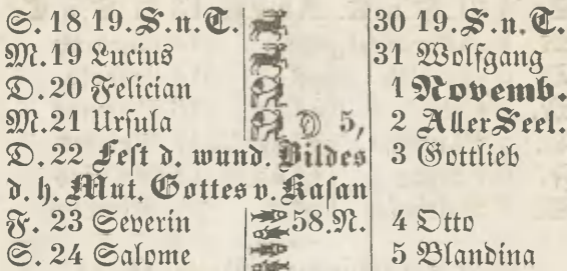 S. 18 19. S. n. T. 30 19. S. n. T.
M. 19 Lucius 31 Wolfgang
D. 20 Felician 1 Novemb.
M. 21 Urſula 5, 2 Aller Seel.
D. 22 Feſt d. wund. Bildes 3 Gottlieb
d. h. Mut. Gottes v. Kaſan
F. 23 Severin 58. N. 4 Otto
S. 24 Salome 5 Blandina